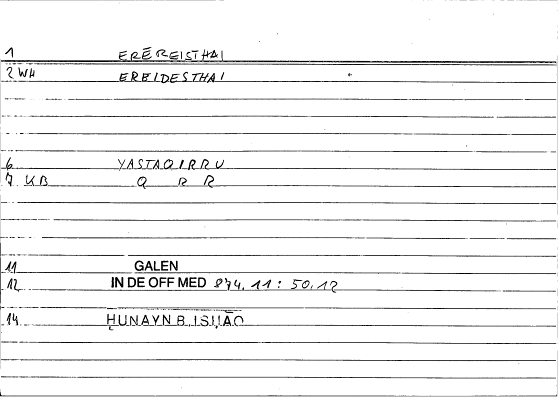 1 ERĒREISTHAI
2 WH EREIDESTHAI
6 YASTAQIRRU
7 KB Q R R
11 GALEN
12 IN DE OFF MED 874, 11 : 50,12
14 ḤUNAYN B. ISḤĀQ